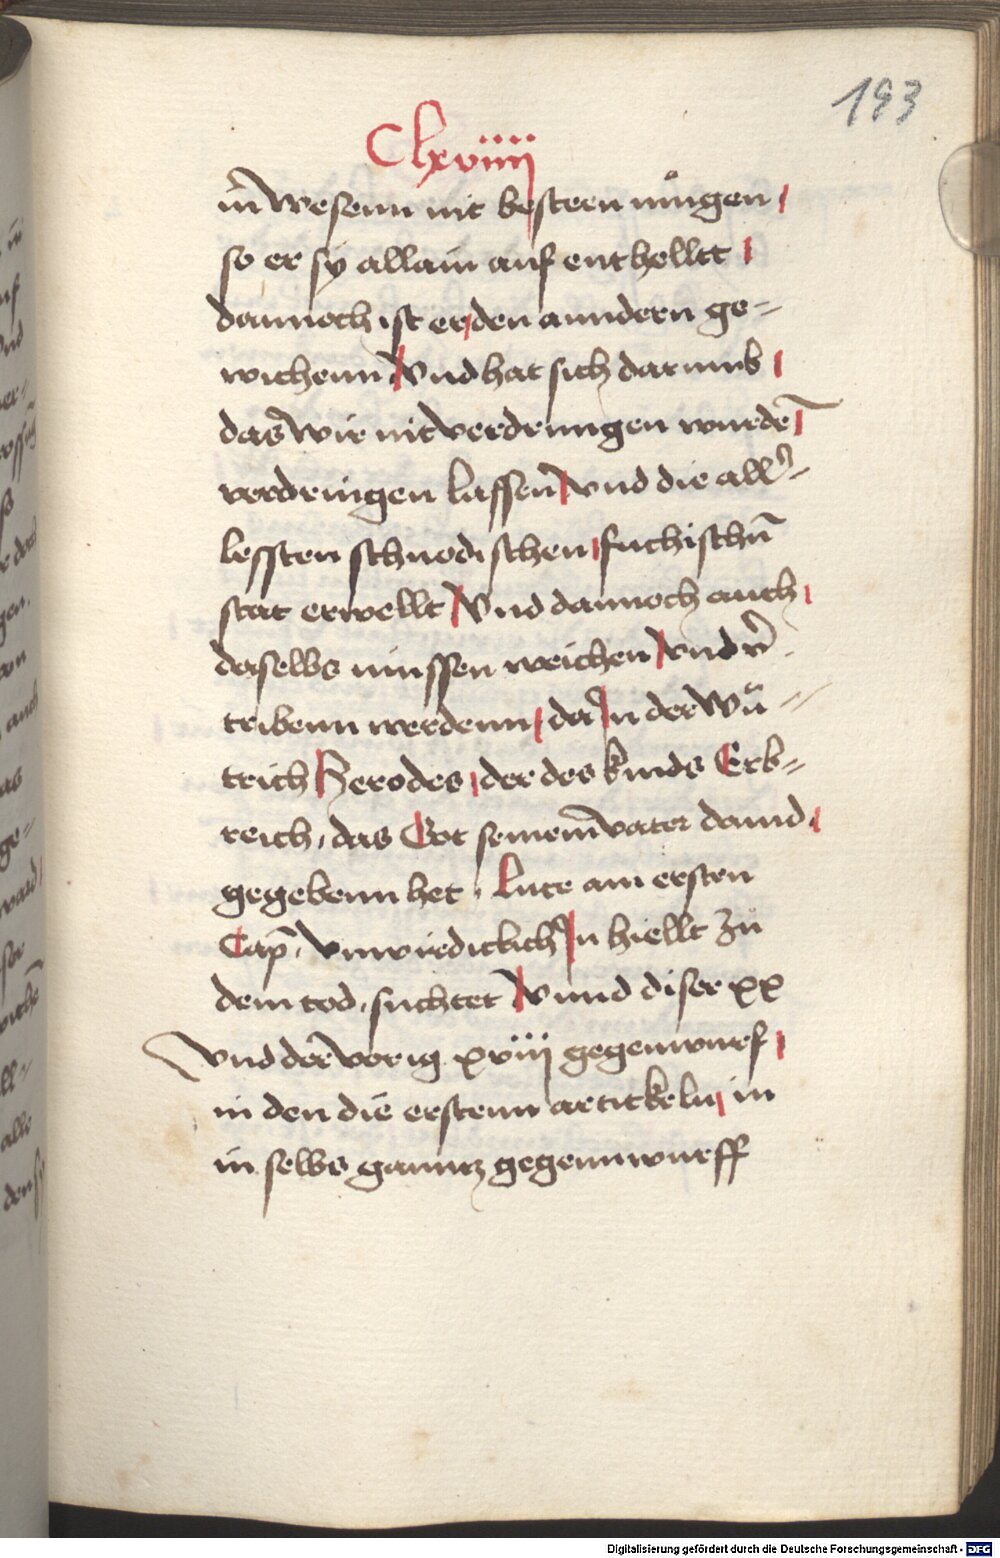 193
Clxviiij
im̄ wesenn nit besteen mu̇gen
so er sy allain auf enthelltt
dannoch ist er den anndern ge-
wichenn Vnd hat sich darumb
das wir nit verdrungen wurdē
verdringen lassen vnd die all-
lessten schnodischen fuchischn̄
stat erwellt Vnd dannoch auch
daselbs mussen weichen vnd v̄-
tribenn werdenn der In der Wu-
trich Herodes der des kinds Erb-
reich, das Got seinem vater dauid
gegebenn het, Luce am ersten
Cap̄. vnwirdicklich In hiellt zu
dem tod suchtet Vnnd diser xx
vnd der vorig xviij gegenwurf
in den die erstenn artickeln in
in selbs ganntz gegennwurff
Digitalisierung gefördert durch die Deutsche Forschungsgemeinschaft - DFG